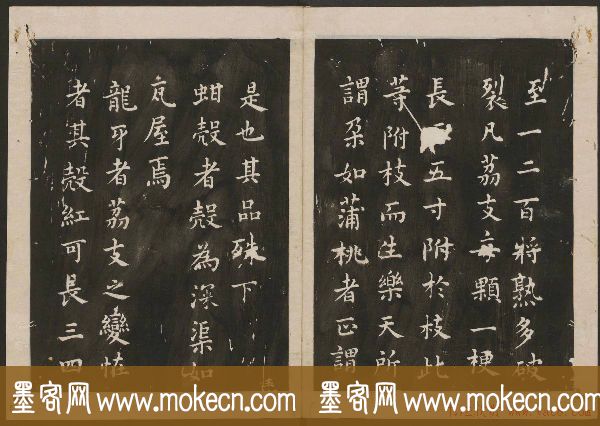 至一二百將熟多破
裂凡荔支每顆一梗
長三五寸附於枝此
等附枝而生樂天所
謂朶如蒲桃者正謂
是也其品殊下
蚶殼者殼為深渠如
瓦屋焉
龍牙者荔支之變怪
者其殼紅可長三四
墨客网 www.mokecn.com 墨客网 www.mokecn.com